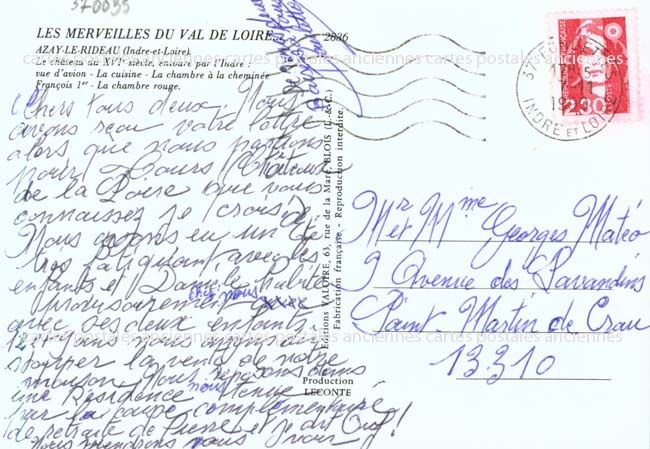 370035
LES MERVEILLES DU VAL DE LOIRE
2836
AZAY-LE-RIDEAU (Indre-et-Loire).
Le château du XVIe siècle, entouré par l'Indre :
vue d'avion - La cuisine - La chambre à la cheminée
François 1er - La chambre rouge.
cartes postales anciennes
Chers tous deux, Nous
avons reçu votre lettre
alors que nous partions
pour Tours Châteaux
de la Loire que vous
connaissez je crois!
Nous avons eu un été
très fatiguant avec les
enfants et Danielle habite
chez nous
provisoirement
avec ses deux enfants.
la vente de notre
maison. Nous
nous
une Résidence tenue
par la caisse complémentaire
de retraite de Pierre et je dis Ouf!
Nous vous
Editions VALOIRE, 63, rue de la Mare, BLOIS (L.-&-C.)
Fabrication française - Reproduction interdite.
Production
LECONTE
2,30
INDRE ET LOIRE
Mr et Mme Georges Matéo
9 Avenue des Lavandins
Saint-Martin de Crau
13310